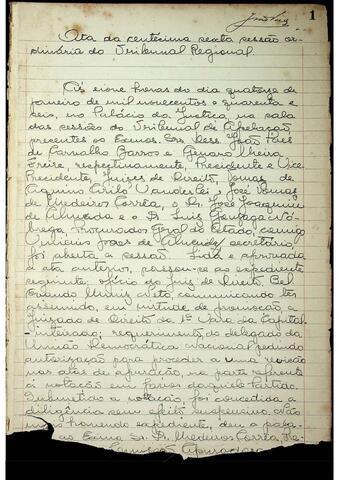 1
Ata da centésima sexta sessão or-
dinária do Tribunal Regional.
Às nove horas do dia quatorze de
janeiro de mil novecentos e quarenta e
seis, no Palácio da Justiça na sala
das sessão do Tribunal de Apelação,
presentes os Exmos. Srs. Dess. João Paes
de Carvalho Barros e Genaro Freire
respectivamente, Presidente e Vice-
Presidente, Juizes de Direito, Tomás de
Aquino Cirilo Wanderlei e José Tomás
de Medeiros Corrêa, o Dr. José Joaquim
de Almeida e o Dr. Luis Gonzaga Nó-
brega, Procurador Geral do Estado, comigo
de Almeida, secretário,
foi aberta a sessão. Lida e aprovada
a ata anterior, passou-se ao expediente
seguinte: ofício do Juiz de Direito, Bel.
Orlando Neto, comunicando ter
assumido, em virtude de promoção, o
Juizado de Direito da 1ª Vara da Capital.
Inteirado; requerimento do delegado da
União Democrática Nacional pedindo
autorização para proceder a uma revisão
nas atas de apuração, na parte referente
à votação em favor daquele Partido.
Submetido a votação, foi concedida a
diligência sem efeito suspensivo. Não
mais havendo expediente, deu a pala-
ao Exmo. Sr. Dr. Medeiros Corrêa,
Comissão Apuradora